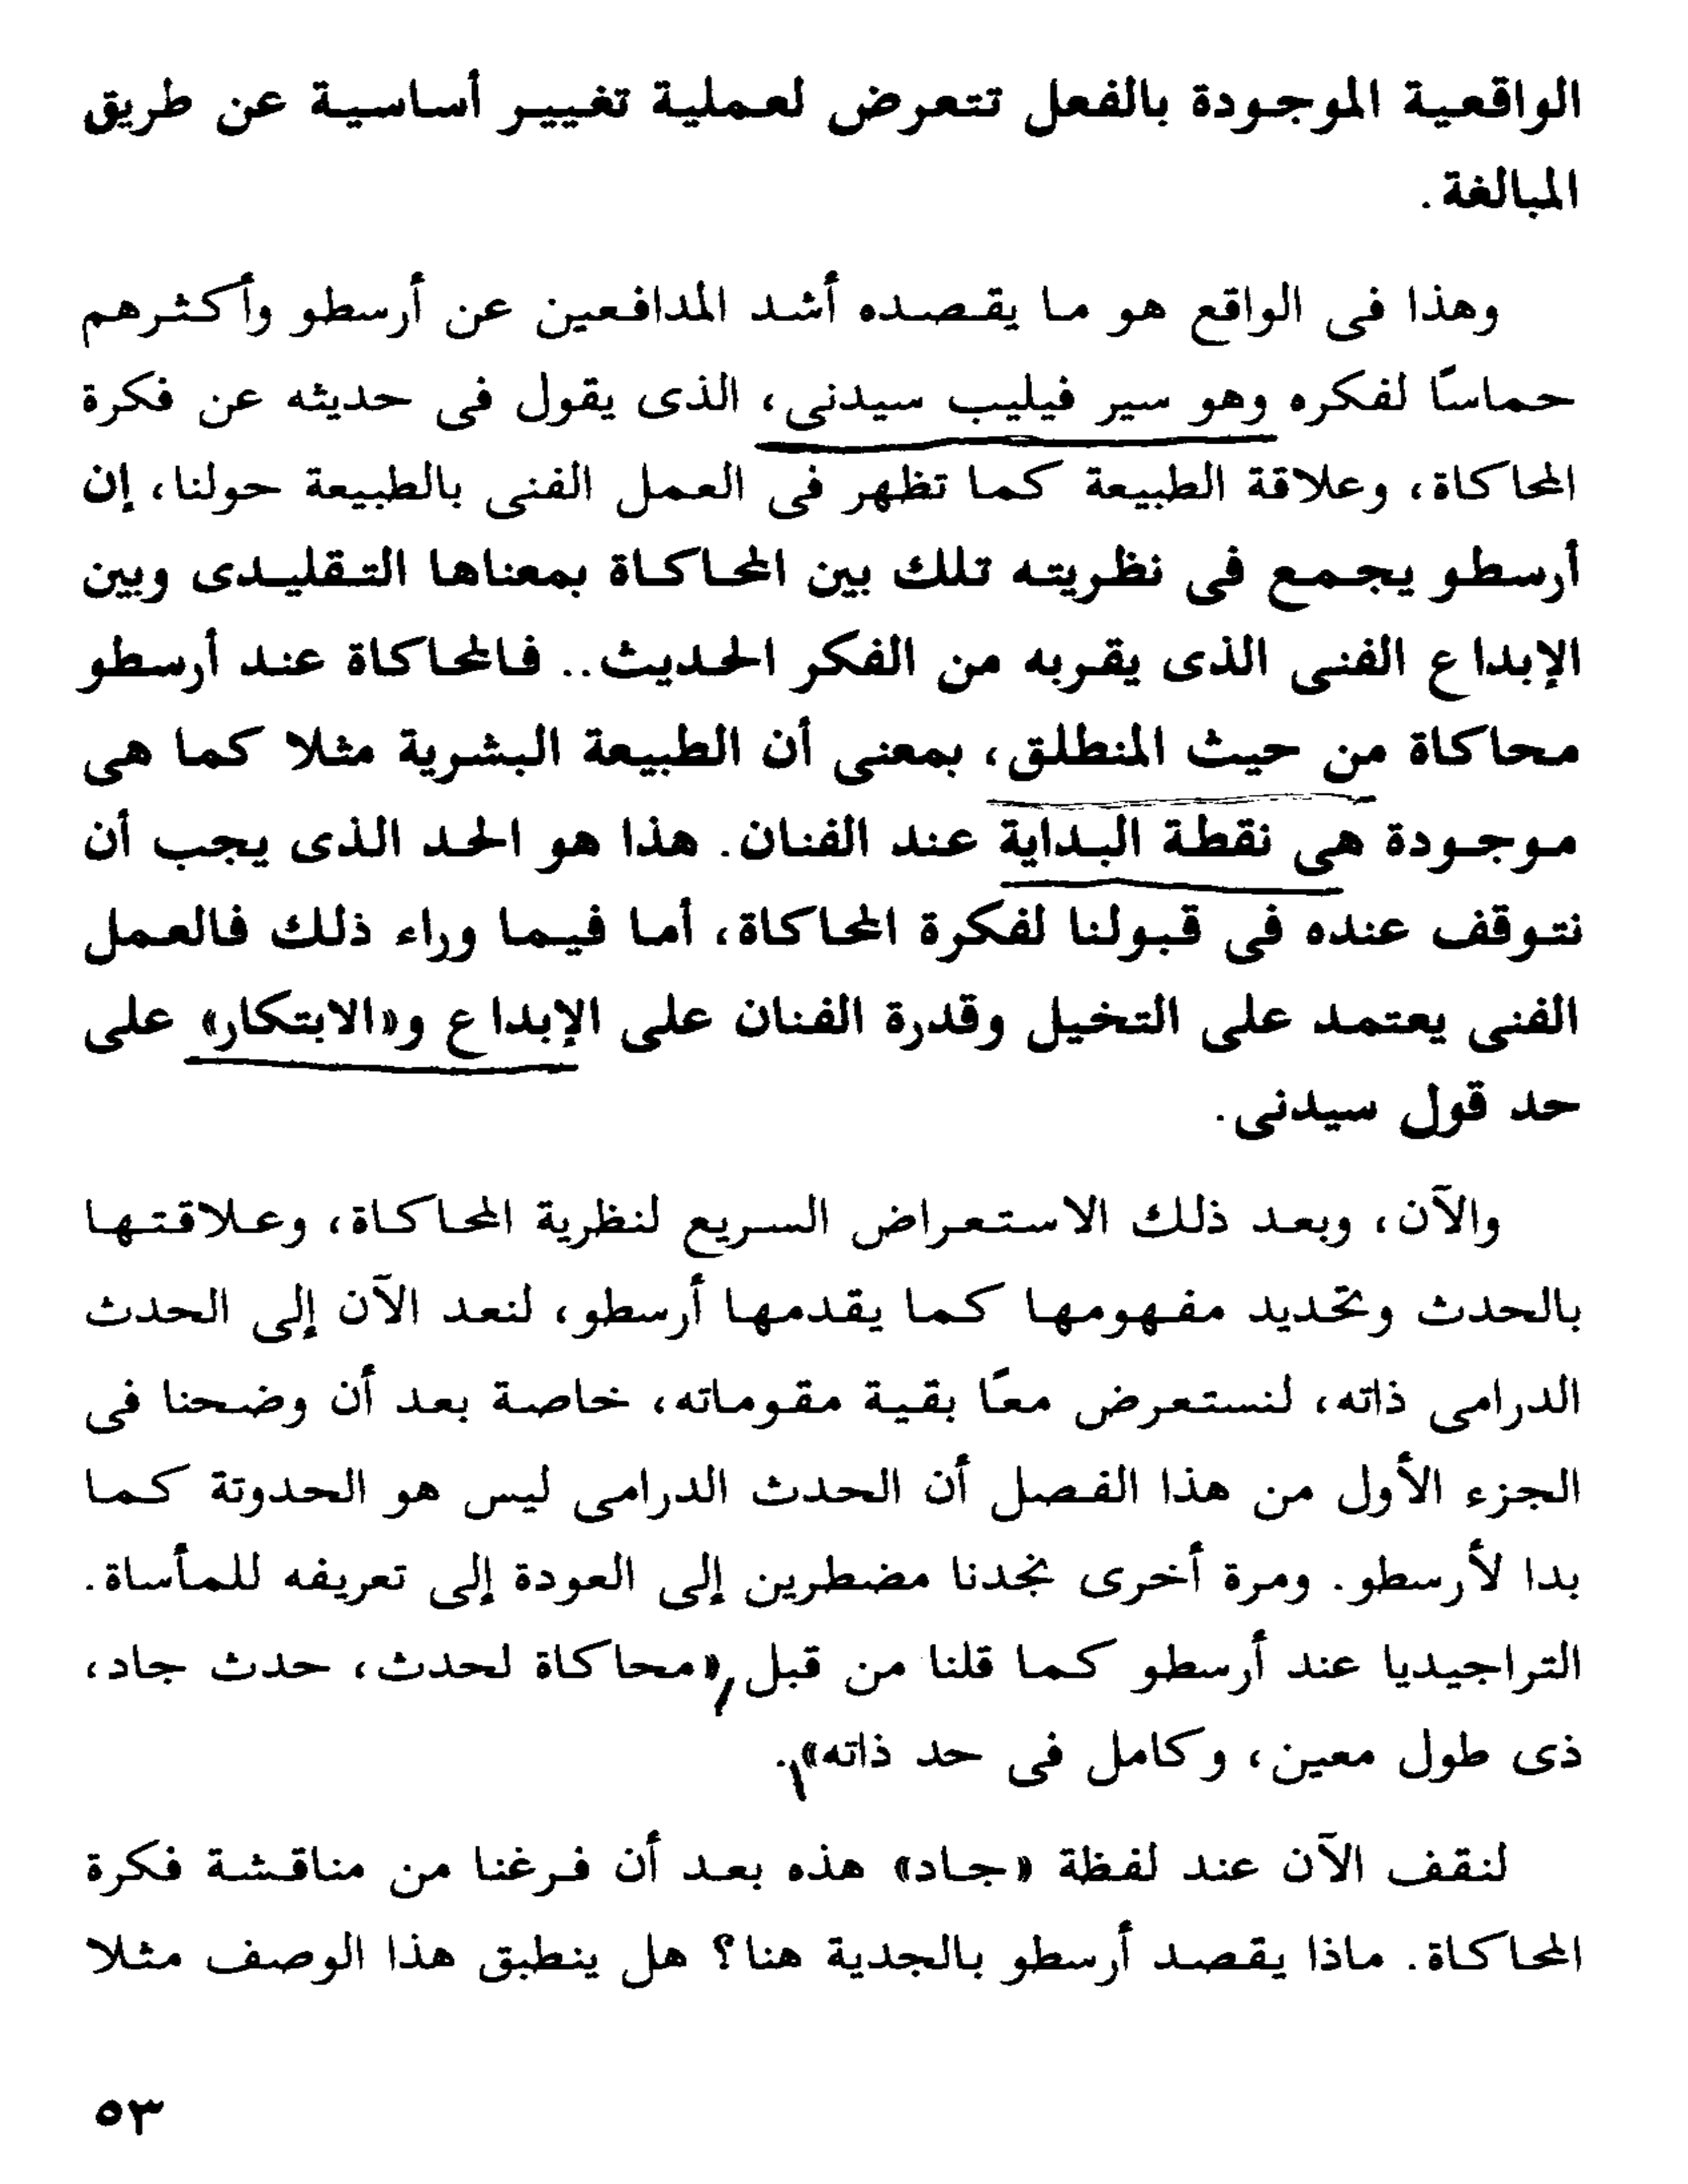 الواقعية الموجودة بالفعل تتعرض لعملية تغيير أساسية عن طريق
المبالغة .
وهذا فى الواقع هو ما يقصده أشد المدافعين عن أرسطو وأكثرهم
حماسًا لفكره وهو سير فيليب سيدنى، الذى يقول فى حديثه عن فكرة
المحاكاة، وعلاقة الطبيعة كما تظهر فى العمل الفنى بالطبيعة حولنا، إن
أرسطو يجمع فى نظريته تلك بين المحاكاة بمعناها التقليدى وبين
الإبداع الفنى الذى يقربه من الفكر الحديث.. فالمحاكاة عند أرسطو
محاكاة من حيث المنطلق، بمعنى أن الطبيعة البشرية مثلا كما هى
موجودة هى نقطة البداية عند الفنان. هذا هو الحد الذى يجب أن
نتوقف عنده فى قبولنا لفكرة المحاكاة، أما فيما وراء ذلك فالعمل
الفنى يعتمد على التخيل وقدرة الفنان على الإبداع و«الابتكار» على
حد قول سيدنى.
والآن، وبعد ذلك الاستعراض السريع لنظرية المحاكاة، وعلاقتها
بالحدث وتحديد مفهومها كما يقدمها أرسطو، لنعد الآن إلى الحدث
الدرامى ذاته، لنستعرض معًا بقية مقوماته، خاصة بعد أن وضحنا فى
الجزء الأول من هذا الفصل أن الحدث الدرامى ليس هو الحدوتة كما
بدا لأرسطو. ومرة أخرى نجدنا مضطرين إلى العودة إلى تعريفه للمأساة.
التراجيديا عند أرسطو كما قلنا من قبل «محاكاة لحدث، حدث جاد،
ذى طول معين، وكامل فى حد ذاته».
لنقف الآن عند لفظة «جاد» هذه بعد أن فرغنا من مناقشة فكرة
المحاكاة. ماذا يقصد أرسطو بالجدية هنا؟ هل ينطبق هذا الوصف مثلا
٥٣